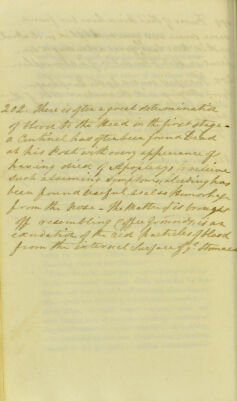 202. There is often a great determination
of blood to the Head in the first stage -
a Centinel has often been found Dead
at his Post with every appearance of
having died of Apoplexy, to relieve
such alarming symptoms, bleeding has
been found useful as also Hemorhage
from the Nose - The Matter if it brought
off resembling Coffee Grounds, is an
exudation of the red Particles of blood
from the internal Surface of ye Stomach